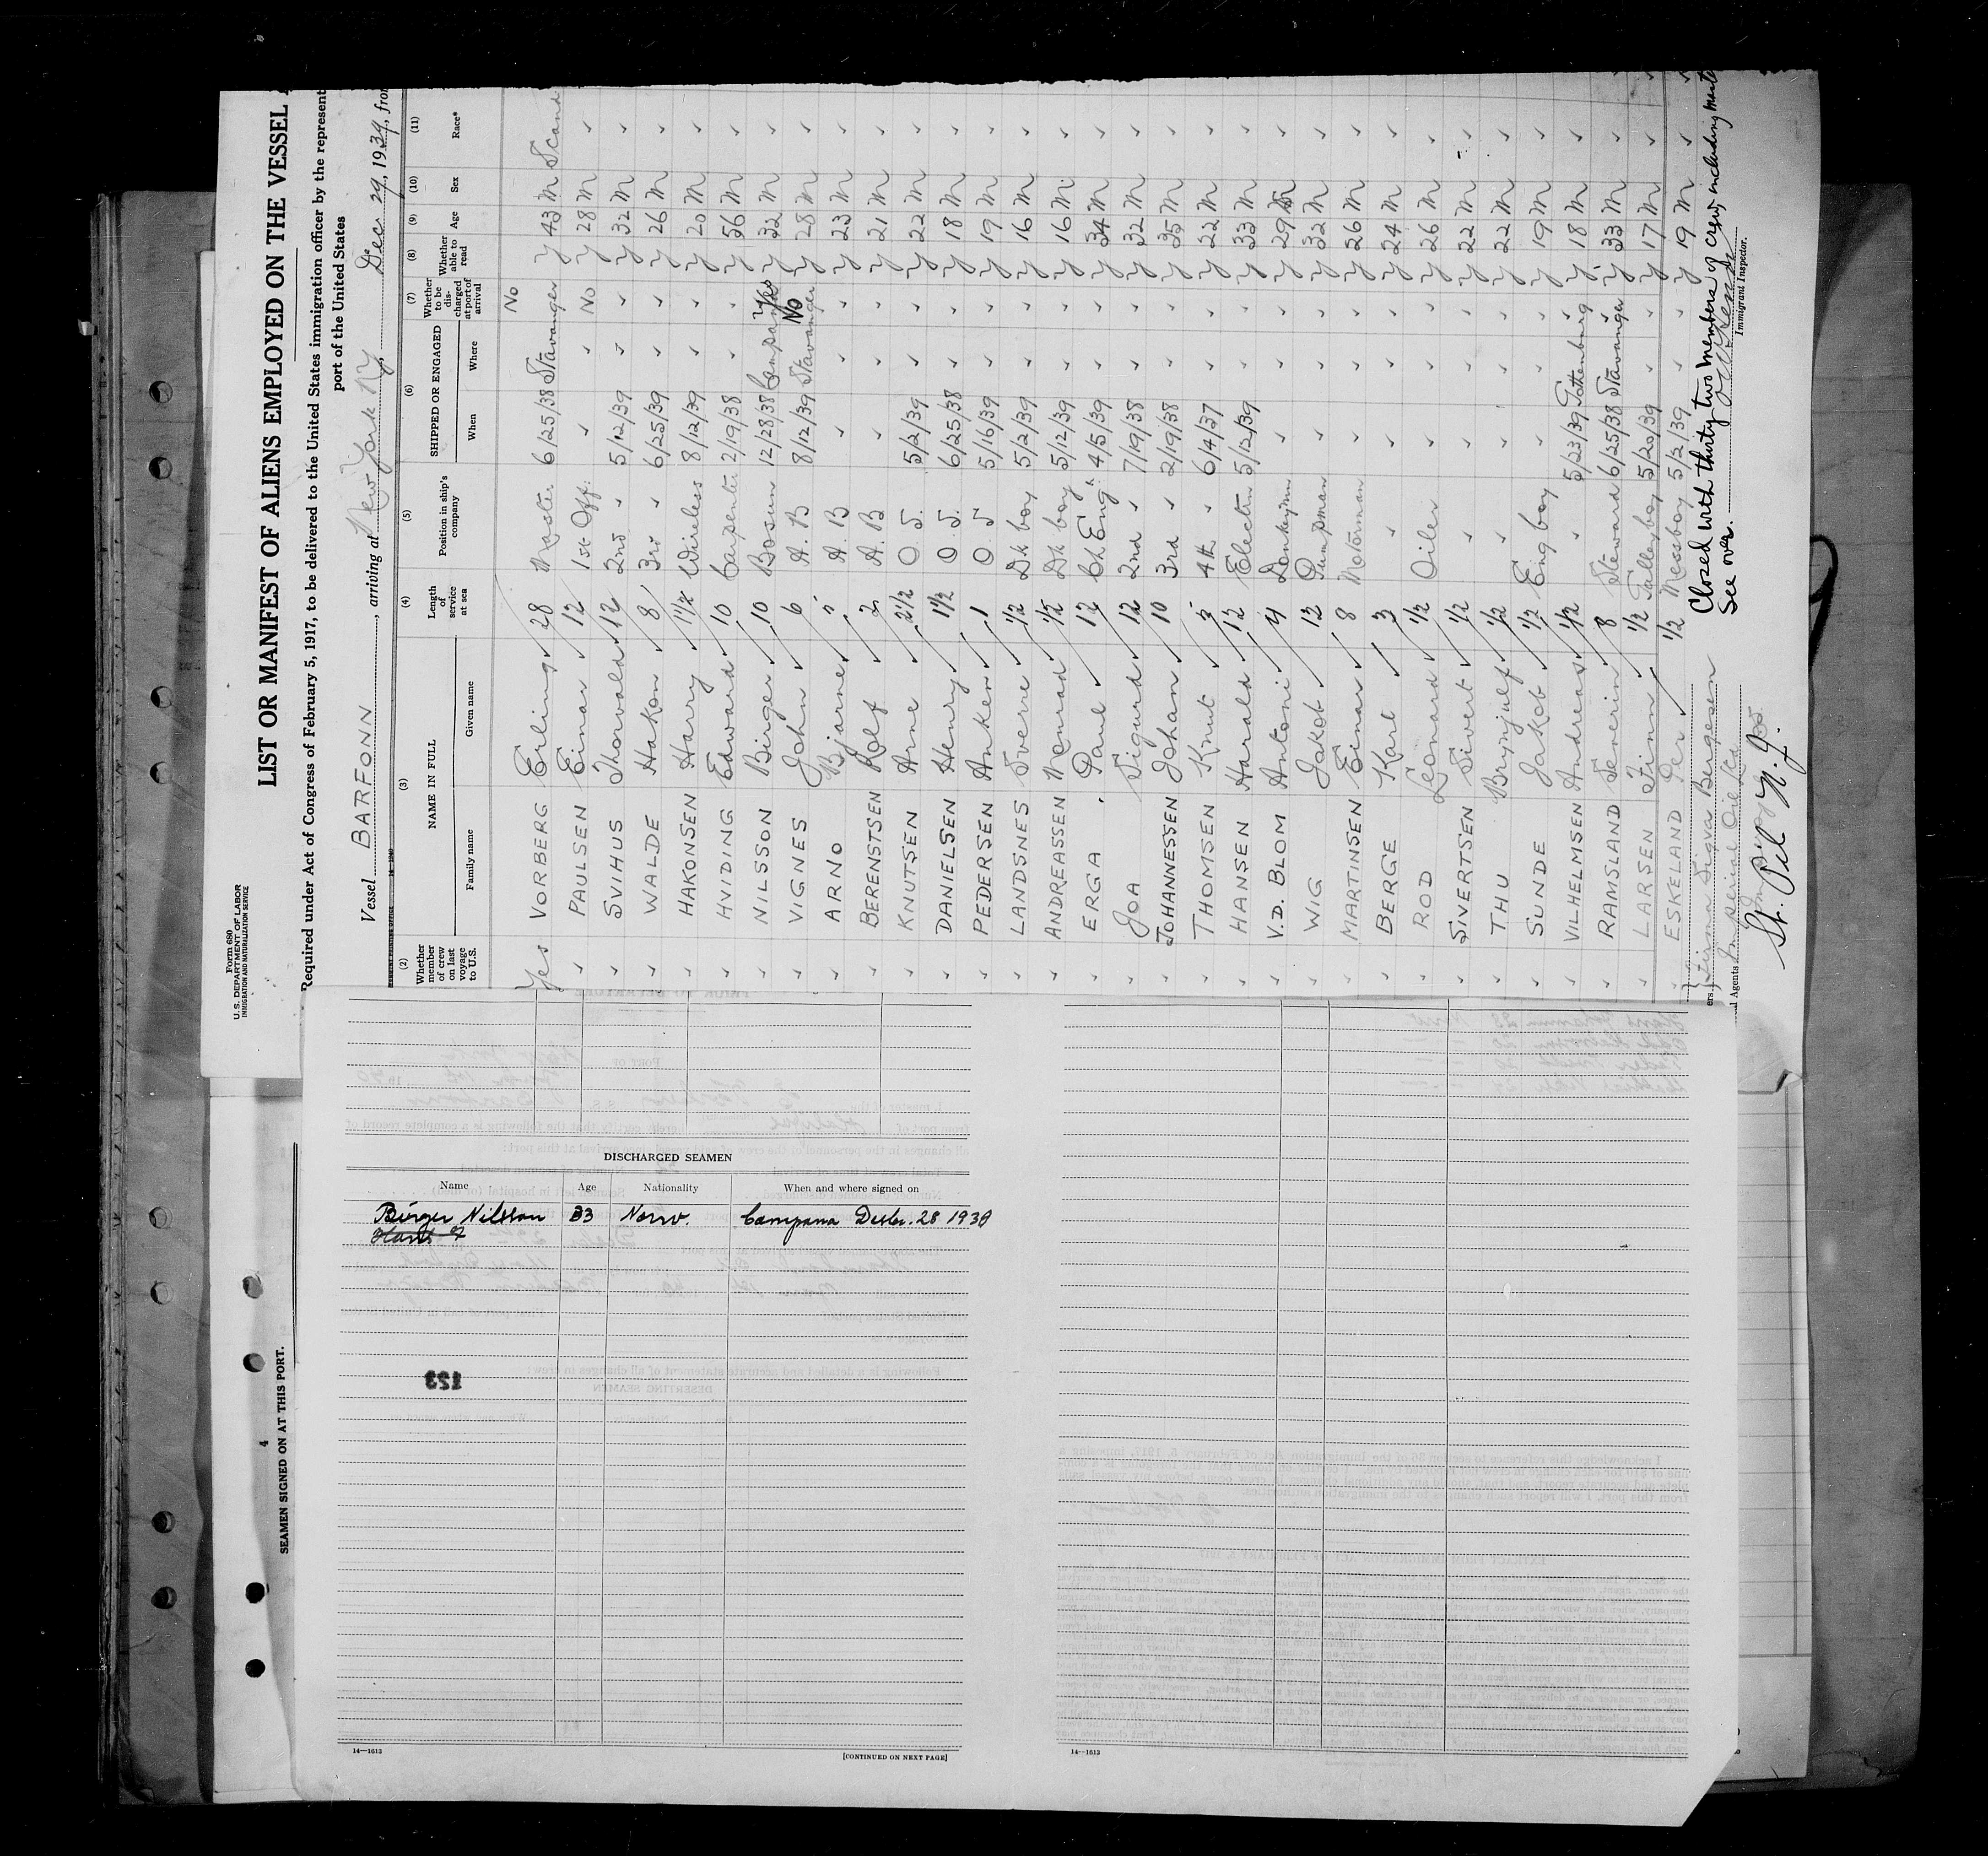 Form 680
U. S. DEPARTMENT OF LABOR
IMMIGRATION AND NATURALIZATION SERVICE
LIST OR MANIFEST OF ALIENS EMPLOYED ON THE VESSEL
Required under Act of Congress of February 5, 1917, to be delivered to the United States immigration officer by the represent
port of the United States
Vessel BARFONN, arriving at New York NY, Dec 29, 1939, from
(2) (3) (4) (5) (6) (7) (8) (9) (10) (11)
Whether member of crew on last voyage to U.S. NAME IN FULL Family name Given name Length of service at sea Position in ship's company SHIPPED OR ENGAGED When Where Whether to be discharged at port of arrival Whether able to read Age Sex Race*
Yes VORBERG Erling 28 Master 6/25/38 Stavanger No y 43 M Scand
" PAULSEN Einar 12 1st Off. " " No y 28 M "
" SVIHUS Thorvald 12 2nd " 5/12/39 " " y 32 M "
" WALDE Hakon 8 3rd " 6/25/39 " " y 26 M "
" HAKONSEN Harry 1½ Wireless 8/12/39 " " y 20 M "
" HVIDING Edward 10 Carpenter 2/19/38 " " y 56 M "
" NILSSON Birger 10 Bosun 12/28/38 Campana Yes y 32 M "
" VIGNES John 6 A. B 8/12/39 Stavanger No y 28 M "
" ARNO Bjarne 5 A. B " " " y 23 M "
" BERENSTSEN Rolf 2 A. B " " " y 21 M "
" KNUTSEN Arne 2½ O. S. 5/2/39 " " y 22 M "
" DANIELSEN Henry 1½ O. S. 6/25/38 " " y 18 M "
" PEDERSEN Anker 1 O. S 5/16/39 " " y 19 M "
" LANDSNES Sverre ½ Dk boy 5/2/39 " " y 16 M "
" ANDREASSEN Menrad ½ Dk boy 5/12/39 " " y 16 M "
" ERGA Paul 12 Ch Eng. 4/5/39 " " y 34 M "
" JOA Sigurd 12 2nd " 7/19/38 " " y 32 M "
" JOHANNESSEN Johan 10 3rd " 2/19/38 " " y 35 M "
" THOMSEN Knut 5 4th " 6/4/37 " " y 22 M "
" HANSEN Harald 12 Electrn 5/12/39 " " y 33 M "
" V.D. BLOM Antoni 4 Donkeymn " " " y 29 M "
" WIG Jakob 12 Pumpman " " " y 32 M "
" MARTINSEN Einar 8 Motorman " " " y 26 M "
" BERGE Karl 3 " " " " y 24 M "
" ROD Leonard ½ Oiler " " " y 26 M "
" SIVERTSEN Sivert ½ " " " " y 22 M "
" THU Brynjulf ½ " " " " y 22 M "
" SUNDE Jakob ½ Eng boy " " " y 19 M "
" VILHELMSEN Andreas ½ " 5/23/39 Gothenburg " y 18 M "
" RAMSLAND Severin 8 Steward 6/25/38 Stavanger " y 33 M "
" LARSEN Finn ½ Galley boy 5/20/39 " " y 17 M "
" ESKELAND Per ½ Messboy 5/2/39 " " y 19 M "
Closed with thirty two members of crew, including master
See over.
Immigrant Inspector.
ers Sigva Bergesen
l Agents Imperial Oil
St. Pet N. J.
DISCHARGED SEAMEN
Name Age Nationality When and where signed on
Birger Nilsson 33 Norw. Campana Decbr. 28 1938
Hans
123
14—1613
[CONTINUED ON NEXT PAGE]
14—1613
4
SEAMEN SIGNED ON AT THIS PORT.